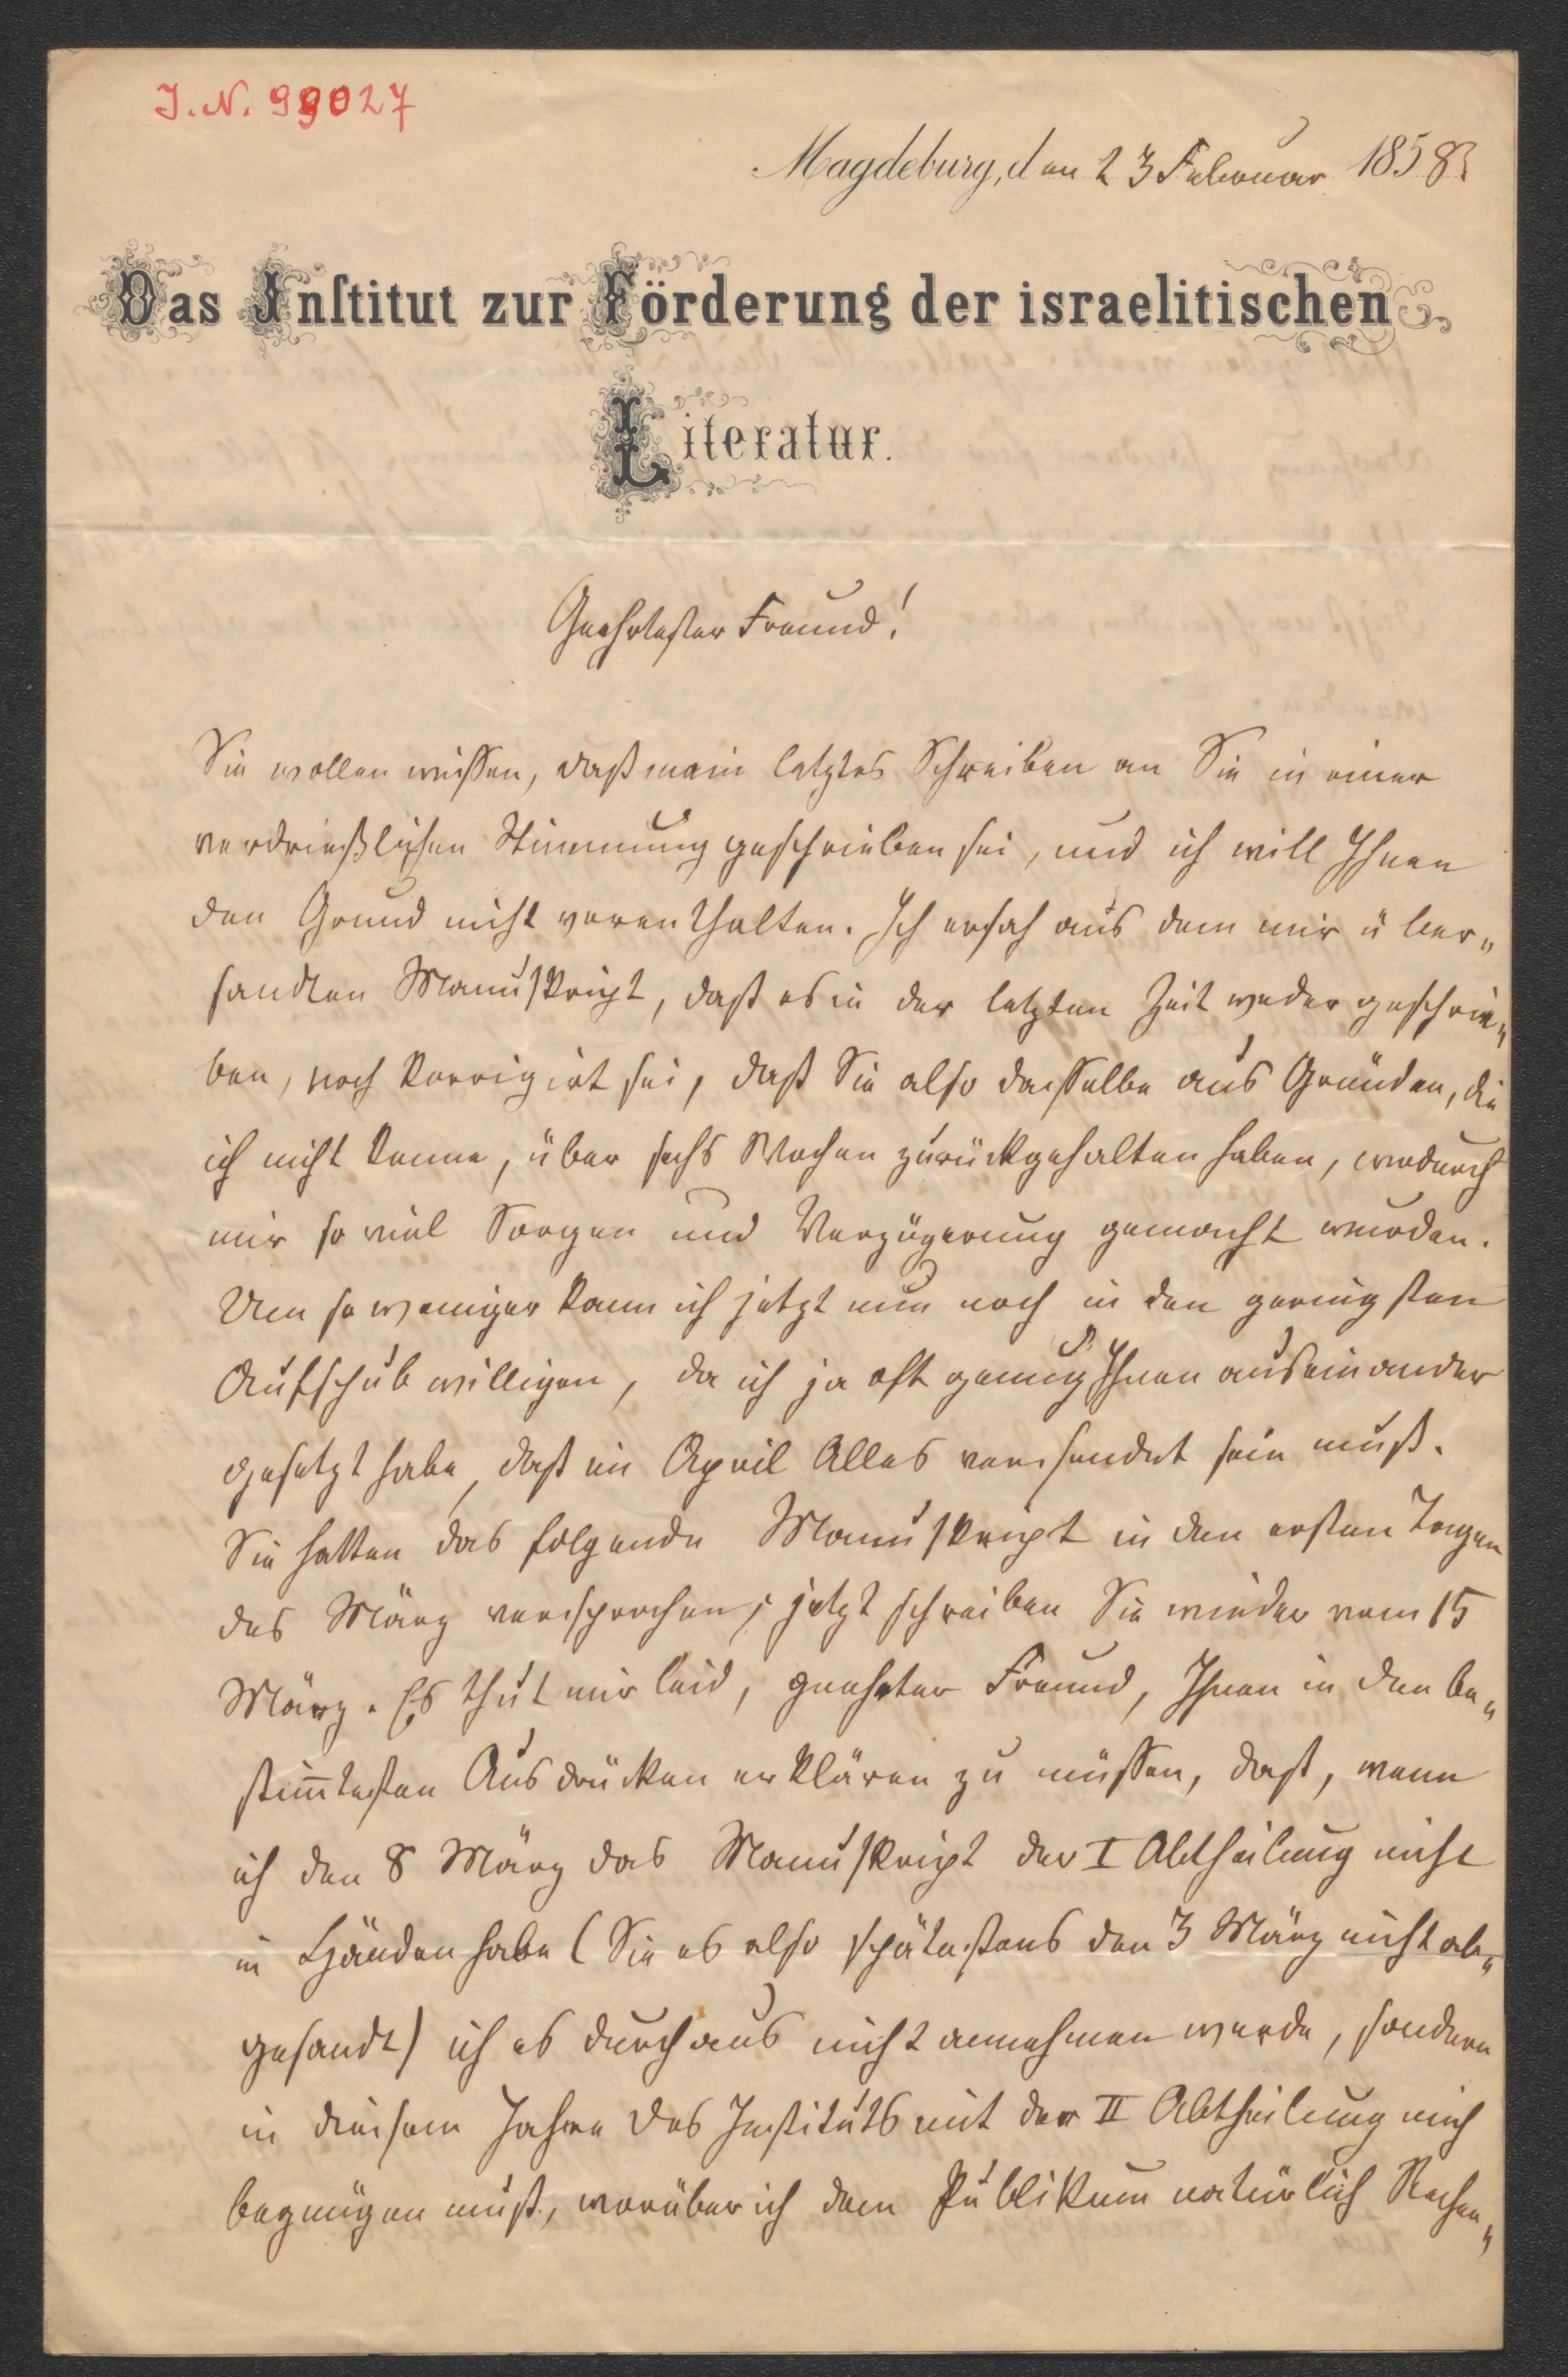 J. N. 99027
Magdeburg, den 23 Februar 1858
Das Inſtitut zur Förderung der israelitischen
Literatur.
Geehrtester Freund!
Sie wollen wissen, daß mein letztes Schreiben an Sie in einer
verdrießlichen Stimmung geschrieben sei, und ich will Ihnen
den Grund nicht vorenthalten. Ich ersah aus dem mir über„
sandten Manuskript, daß es in der letzten Zeit weder geschrie„
ben, noch korrigirt sei, daß Sie also dasselbe aus Gründen, die
ich nicht kenne, über sechs Wochen zurückgehalten haben, wodurch
mir so viel Sorgen und Verzögerung gemacht wurden.
Um so weniger kann ich jetzt nun noch in den geringsten
Aufschub willigen, da ich ja oft genug Ihnen auseinander
gesetzt habe, daß im April Alles versendet sein muß.
Sie hatten das folgende Manuskript in den ersten Tagen
des März versprochen, jetzt schreiben Sie wieder vom 15
März. Es thut mir leid, geehrter Freund, Ihnen in den be„
stim̅testen Ausdrücken erklären zu müssen, daß, wenn
ich den 8 März das Manuskript der I Abtheilung nicht
in Händen habe (Sie es also spätestens den 3 März nicht ab„
gesandt) ich es durchaus nicht annehmen werde, sondern
in diesem Jahre des Instituts mit der II Abtheilung mich
begnügen muß, worüber ich dem Publikum natürlich Rechen„